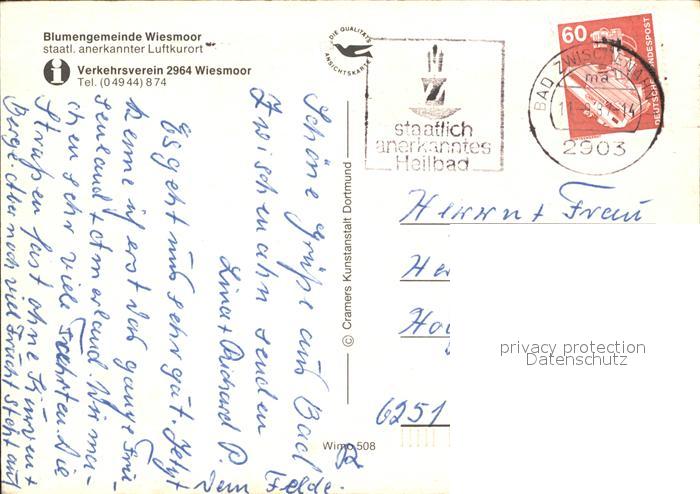 Blumengemeinde Wiesmoor
staatl. anerkannter Luftkurort
i Verkehrsverein 2964 Wiesmoor
Tel. (0 49 44) 8 74
DIE QUALITÄTS
ANSICHTSKARTE
staatlich
anerkanntes
Heilbad
60
DEUTSCHE BUNDESPOST
BAD ZWISCHENAHN
2903
Schöne Grüße aus Bad
Zwischenahn senden
Lina + Richard P.
Es geht uns sehr gut. Jetzt
kenne ich erst das ganze Frie-
senland + Ammerland. Wir ma-
chen sehr viele Fahrten. Die
Straßen fast ohne Kurven +
Berge. Aber noch viel Frucht steht auf
dem Felde.
© Cramers Kunstanstalt Dortmund
Wimo 508
Herrn + Frau
6251
privacy protection
Datenschutz